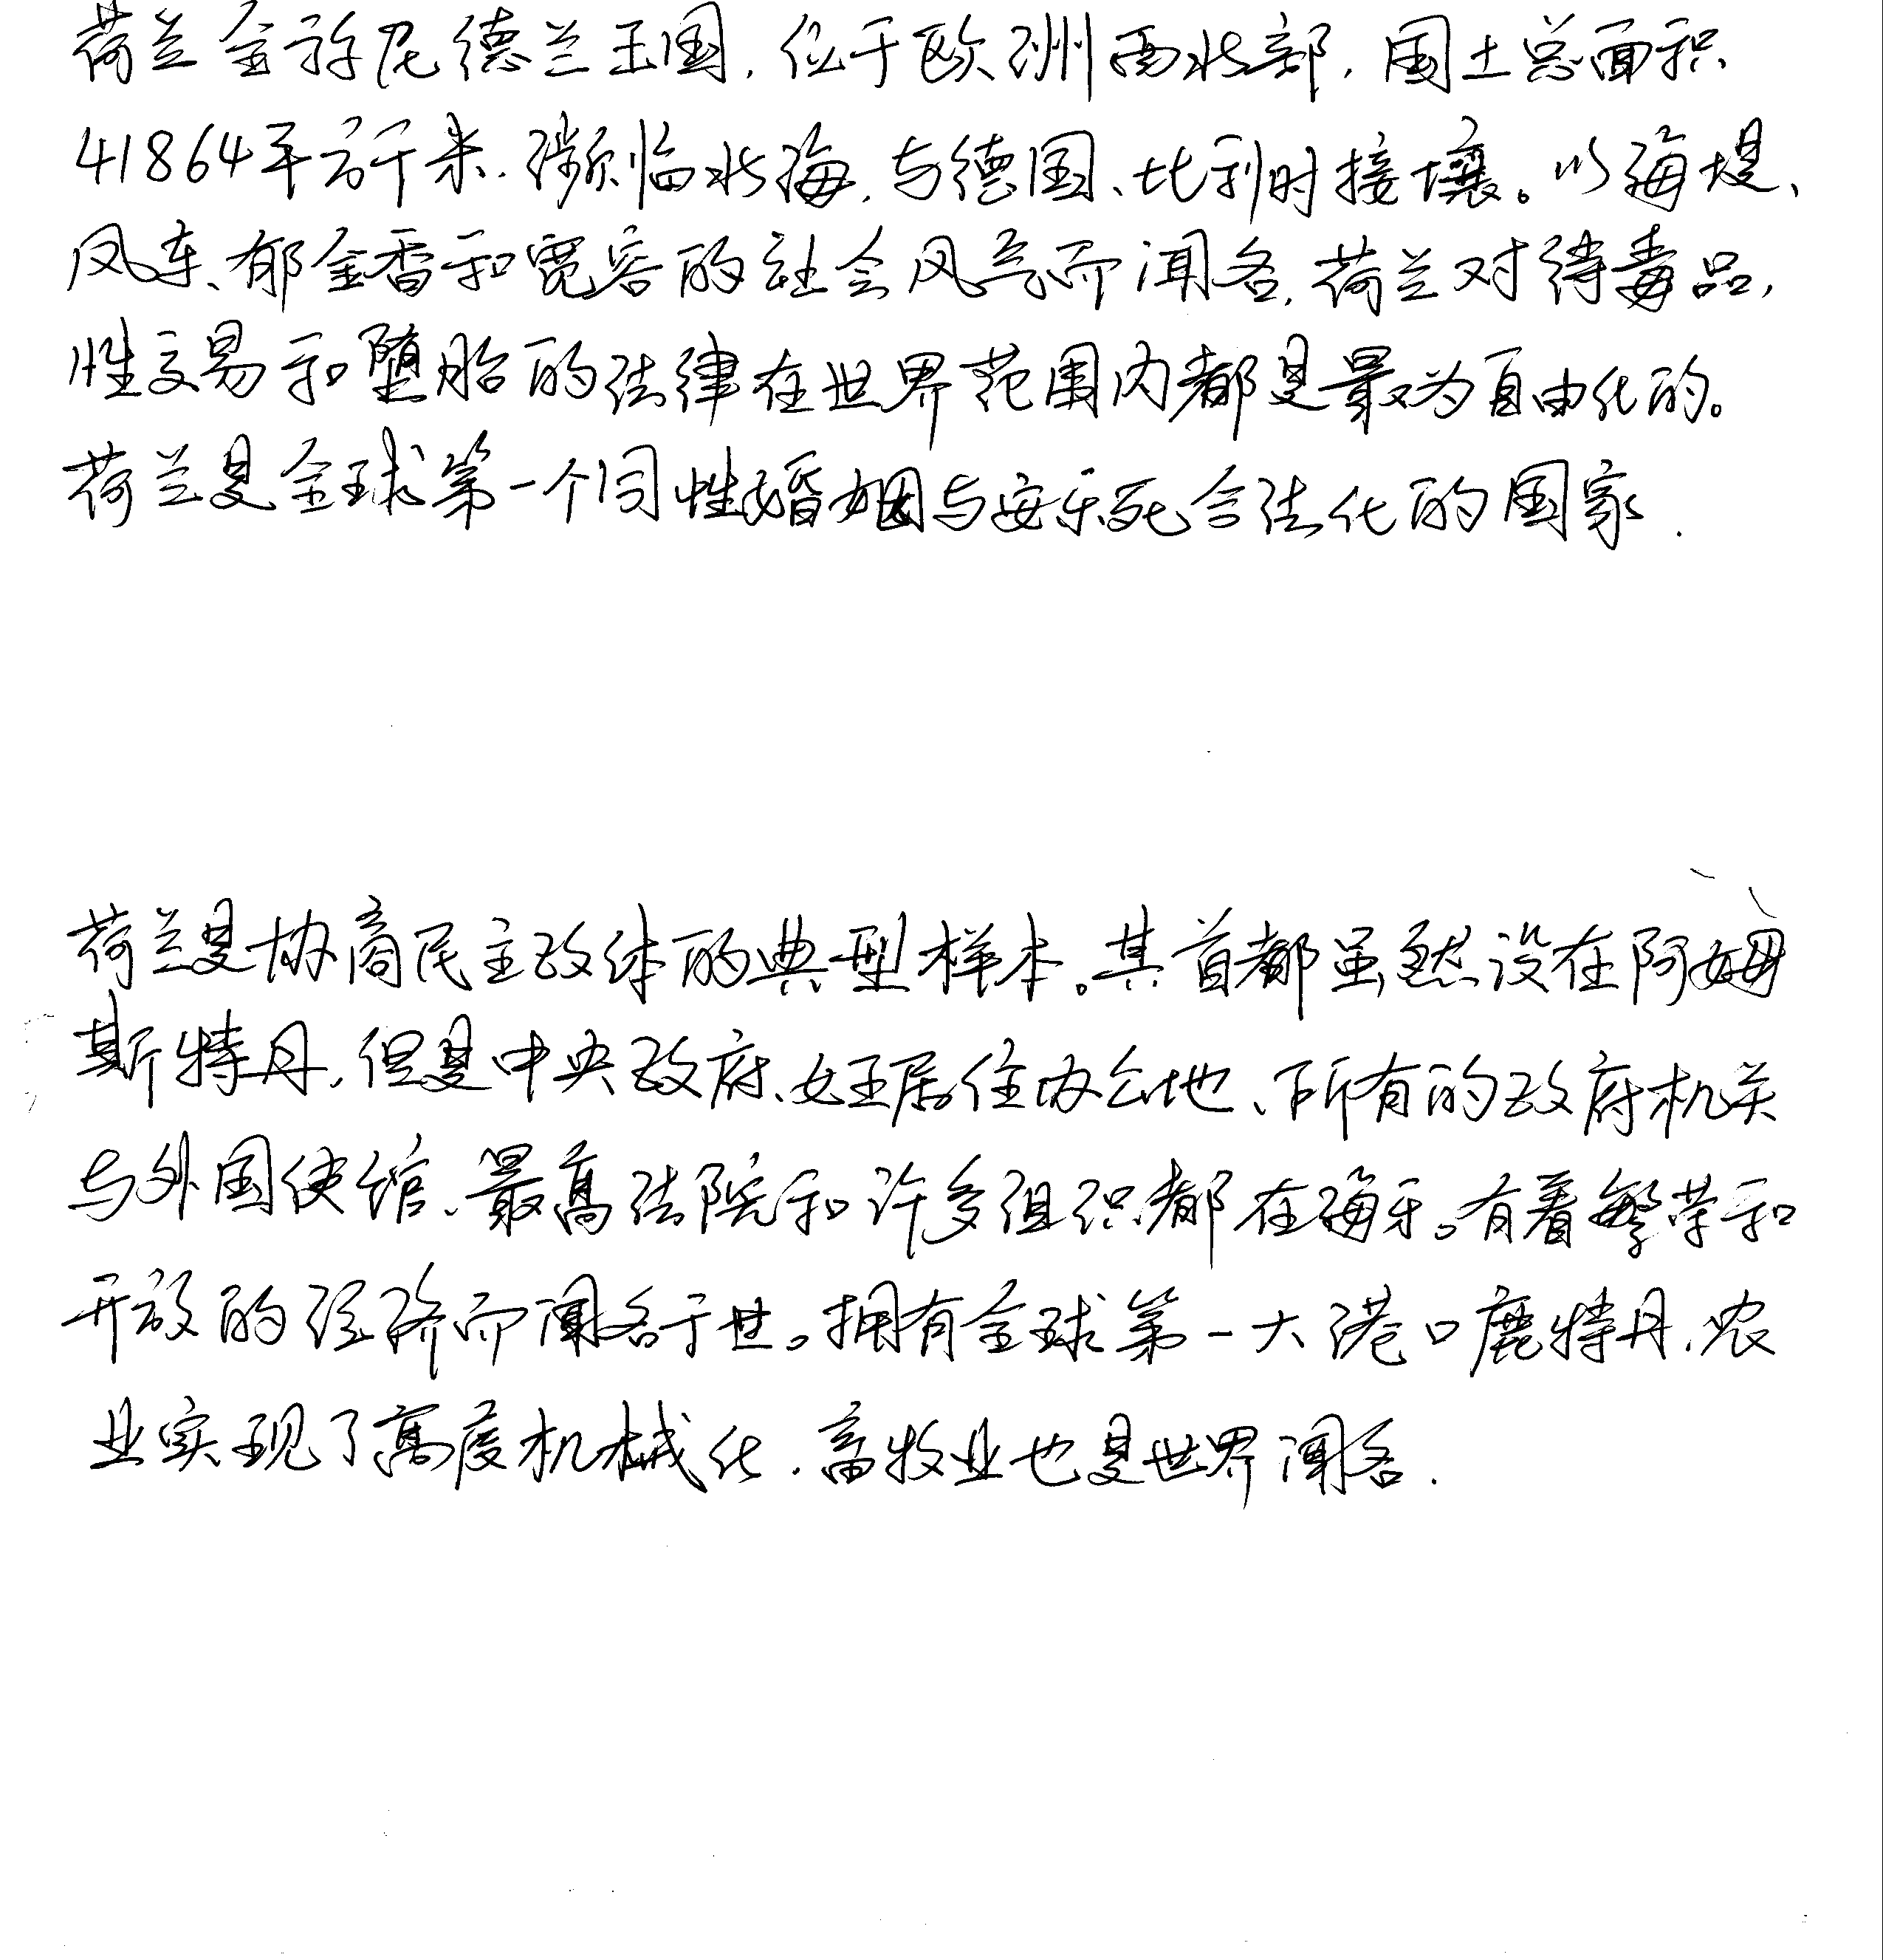 荷兰全称尼德兰王国,位于欧洲西北部,国土总面积
41864平方千米,濒临北海,与德国、比利时接壤。以海堤、
风车、郁金香和宽容的社会风气而闻名,荷兰对待毒品,
性交易和堕胎的法律在世界范围内都是最为自由化的。
荷兰是全球第一个同性婚姻与安乐死合法化的国家.
荷兰是协商民主政体的典型样本。其首都虽然设在阿姆
斯特丹,但是中央政府、女王居住办公地、所有的政府机关
与外国使馆、最高法院和许多组织都在海牙。有着繁荣和
开放的经济而闻名于世。拥有全球第一大港口鹿特丹,农
业实现了高度机械化,畜牧业也是世界闻名.